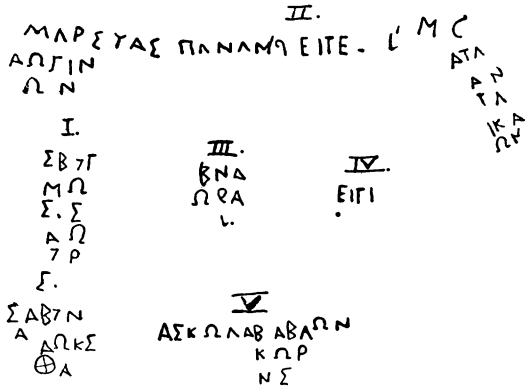 II.
ΜΑΡΣΥΑΣ ΠΑΝΑΜ ΕΙΠΕ. L' Μ C
ΑΩΓΙΝ
ΩΝ
ΑΤΛ
Ν
Α
ΤΛ
ΙΚΑ
ΩΝ
I.
ΣΒ7Γ
ΜΩ
Σ. Σ
ΑΩ
7Ρ
Σ.
ΣΑΒ7Ν
Α
ΑΩΚΣ
⊕Α
III.
ΒΝΔ
ΩΡΑ
ι.
IV.
ΕΙΓΙ
V
ΑΣΚΩΛΑΒ ΑΒΛΩΝ
ΚΩΡ
ΝΣ